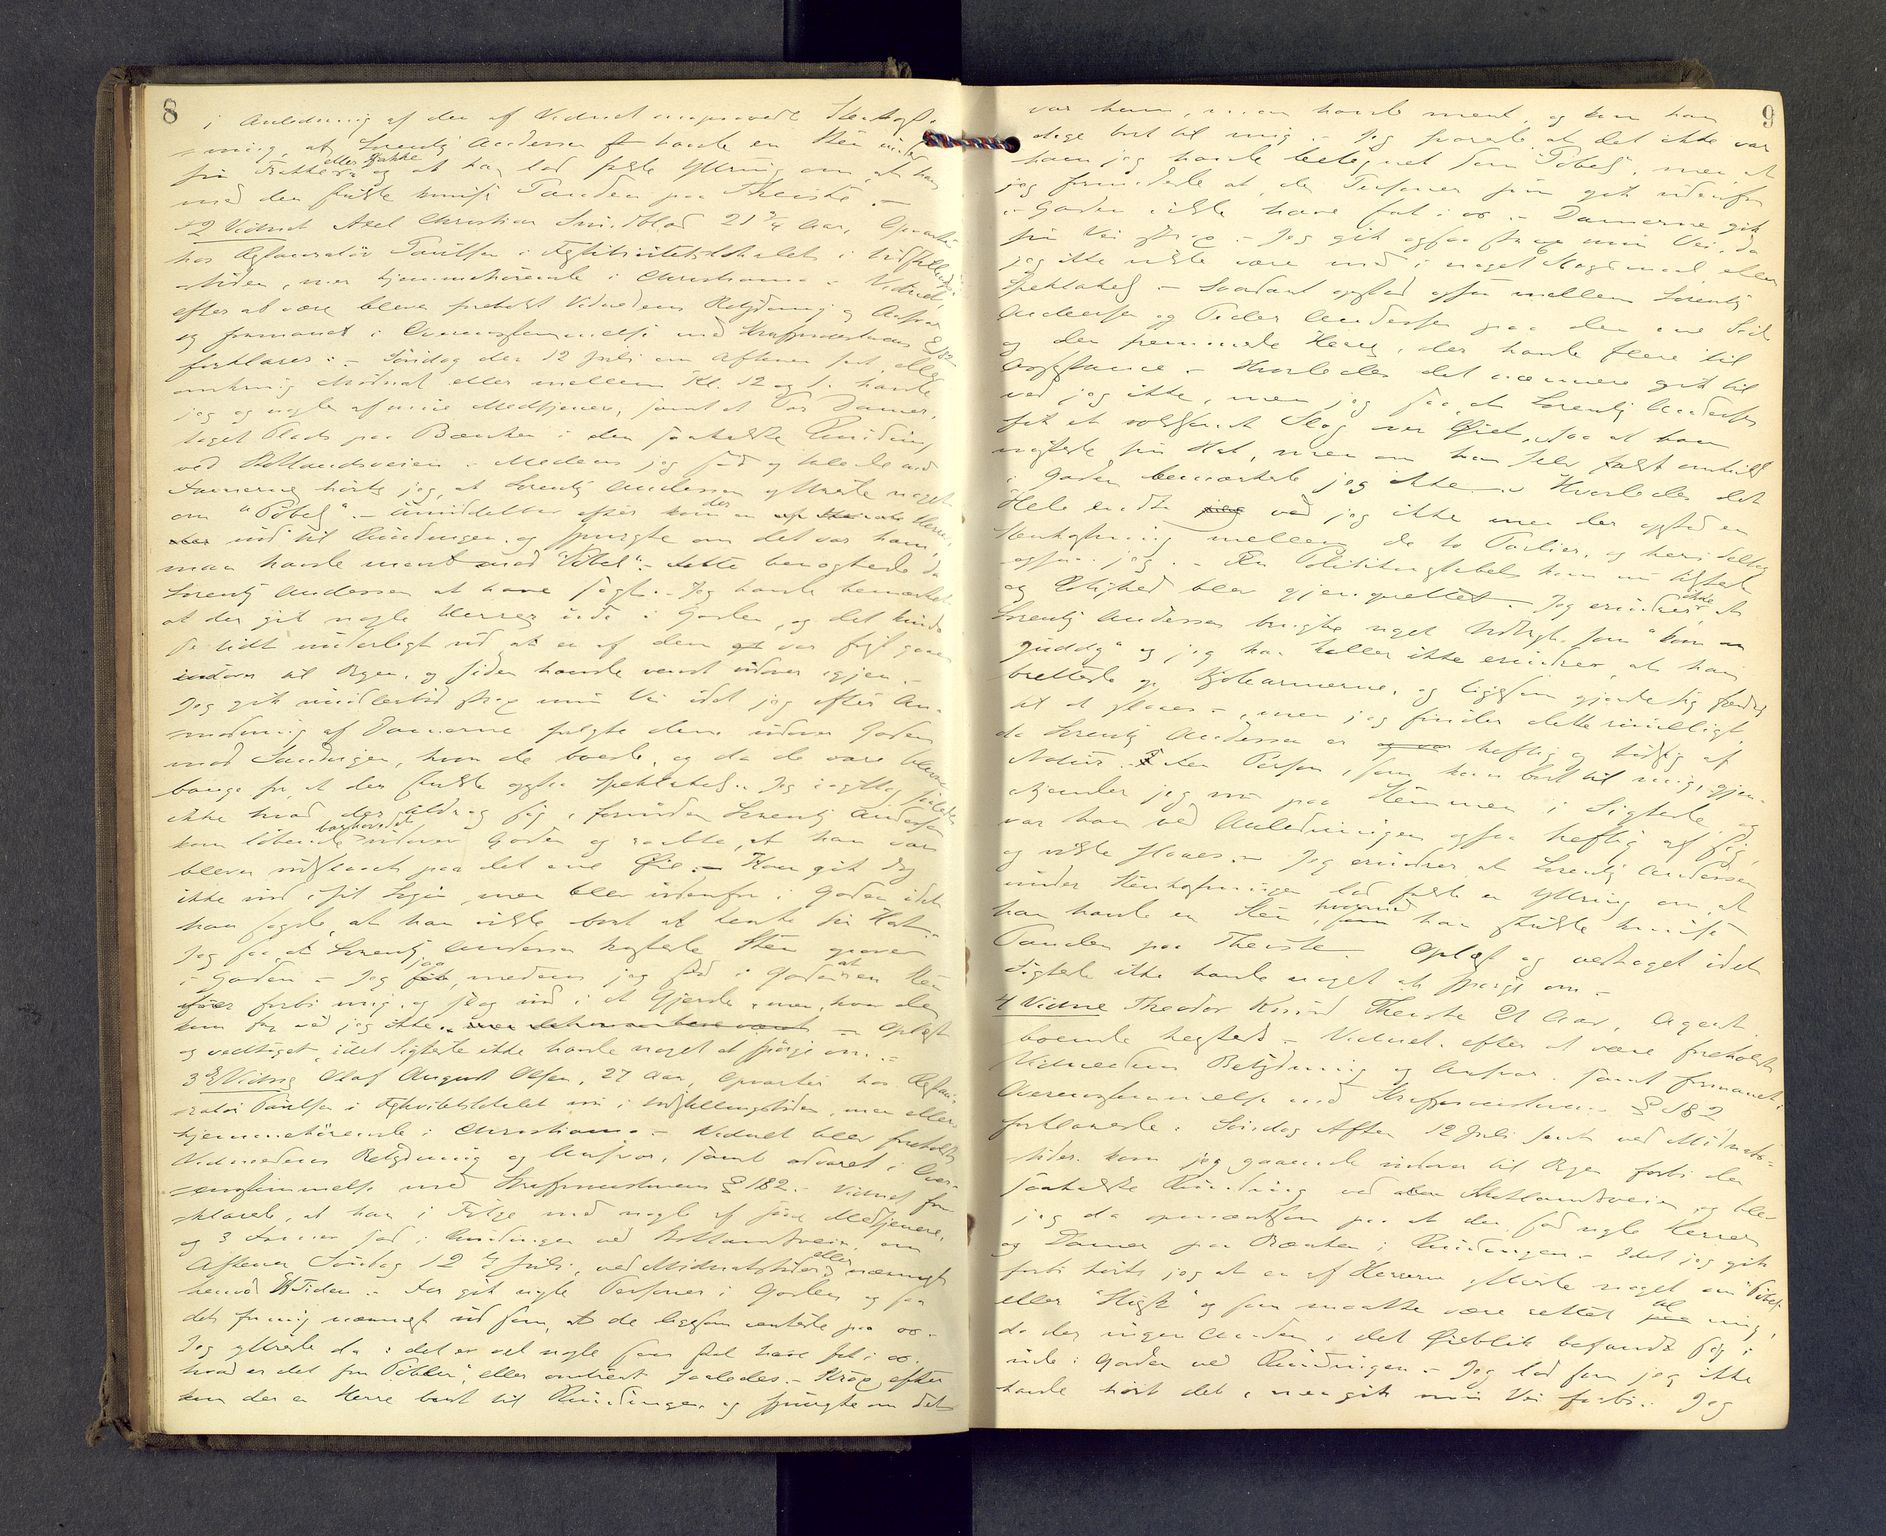 8
i Anledning af den af Vidnet
at Lorentz Andersen havde en Sten under
eller Jakke
og at han lod falde Yttring om, at han
med den skulde knuse Tanden paa Theiste. –
2 Vidnet Axel Christian 21 3/4 Aar, Opvarter
hos Restauratør Paulsen i Festivitetslokalet i Udstillings-
tiden, men hjemmehörende i Christiania. – Vidnet
efter at være bleven foreholdt Vidneedens Betydning og Ansvar
og formanet i Overensstemmelse med Straffeproceslovens § 182
forklarer: – Søndag den 12 Juli om Aftenen sent, eller
omkring Midnat eller mellem Kl. 12 og 1. havde
jeg og nogle af mine Medtjenere, samt et Par Damer,
taget Plads paa Bænken i den saakaldte Runding
ved Medens jeg sad og talede med
Damerne hørte jeg, at Lorentz Andersen yttrede noget
om "Pöbel". – Umiddelbar efter kom der en Herre
ind til Rundingen og spurgte om det var ham,
man havde ment med "Pöbel". – Dette benegtede da
Lorentz Andersen at have sagt. – Jeg havde bemærket
at der gik nogle Herrer ude i Gaden, og det
lidt underligt ud at en af dem var först gaaet
indover til Byen, og siden havde vendt udover igjen. –
Jeg gik imidlertid strax min Vei idet jeg efter An-
modning af Damerne fulgte dem udover Gaden
mod Sandvigen, hvor de boede, og da de vare blevne
bange for, at der skulde opstaa Spektakel. Jeg iagttog saaledes
ikke hvad der tildrog sig, forinden Lorentz Andersen
barhovedet
kom løbende udover Gaden og raabte, at han var
bleven paa det ene Øie. – Han gik dog
ikke ind i sit Logi, men blev udenfor i Gaden idet
han sagde, at han vilde bort at hente sin Hat. –
Jeg saa, at Lorentz Andersen kastede Sten
i Gaden – Jeg saa, medens jeg stod i Gaden at en Sten
foer forbi mig og slog ind i et Gjerde, men hvor den
kom fra ved jeg ikke. – Oplæst
og vedtaget, idet Sigtede ikke havde noget at spörge om. –
3 Vidne Olaf August Olsen, 27 Aar, Opvarter hos Restau-
ratør Paulsen i Festivitetslokalet nu i Udstillingstiden, men ellers
hjemmehörende i Christiania. – Vidnet blev foreholdt
Vidneedens Betydning og Ansvar, samt advaret i Over-
ensstemmelse med Straffeproceslovens § 182. – Vidnet for-
klarede, at han i Følge med nogle af sine Medtjenere,
og 3 Damer sad i Rundingen ved om
Aftenen Søndag 12 Juli, ved Midnatstider eller nærmest
henved Tiden. – Der gik nogle Personer i Gaden og saa
det for mig nærmest ud som, at de ligesom ventede paa os. –
Jeg yttrede da: det er vel nogle som skal have fat i os.
hvad er det for Pöbler, eller omtrent saaledes. – Strax efter
kom der en Herre bort til Rundingen og spurgte om det
9
var ham, man havde ment, og kom han
lige bort til mig. – Jeg svarede, at det ikke var
ham jeg havde betegnet som "Pöbel", men at
jeg formodede at de Personer som gik udenfor
i Gaden vilde have fat i os. – Damerne gik
sin Vei strax. – Jeg gik ogsaa strax min Vei, da
jeg ikke vilde være med i noget Slagsmaal eller
Spektakel. – Saadant opstod ogsaa mellem Lorentz
Andersen og Peder Andersen paa den ene Side
og den fremmede Herre, der havde flere til
Assistance. – Hvorledes det nærmere gik til
ved jeg ikke, men jeg saa, at Lorentz Andersen
fik et voldsomt Slag over Øiet, saa at han
mistede sin Hat, men om han selv faldt omkuld
i Gaden bemærkede jeg ikke. – Hvorledes det
Hele endte ved jeg ikke men der opstod en
Stenkastning mellem de to Partier, og heri deltog
ogsaa jeg. – En Politikonstabel kom nu tilstede
og Rolighed blev gjenoprettet. – Jeg erindrer ikke at
Lorentz Andersen brugte noget Udtryk som "kom
" og jeg kan heller ikke erindre, at han
brettede op Kjolearmerne, og ligesom gjorde sig færdig
til at slaaes. –, men jeg finder dette rimeligt,
da Lorentz Andersen er heftig og hidsig af
Natur. Den Person, som kom bort til mig, gjen-
kjender jeg nu paa Stemmen i Sigtede, og
var han ved Anledningen ogsaa heftig af sig,
og vilde slaaes. – Jeg erindrer, at Lorentz Andersen
under Stenkastningen lod falde en Yttring om, at
han havde en Sten hvormed han skulde knuse
Tanden paa Theiste. Oplæst og vedtaget idet
Sigtede ikke havde noget at spørge om. –
4 Vidne Theodor Knud Theiste 21 Aar, Agent
boende – Vidnet. efter at være foreholdt
Vidneedens Betydning og Ansvar. samt formanet i
Overensstemmelse med Straffeproceslovens § 182
forklarede: Søndag Aften 12 Juli sent ved Midnats-
tider kom jeg gaaende indover til Byen forbi den
saakaldte Runding ved og blev
jeg da opmærksom paa at der sad nogle Herrer
og Damer paa Bænken i Rundingen. – Idet jeg gik
forbi hørte jeg at en af Herrerne yttrede noget om "Pöbel"
eller "Slig" og som maatte være rettet til mig,
da der ingen Anden i det Øieblik befandt sig
ude i Gaden ved Rundingen. – Jeg lod som jeg ikke
havde hørt det, men gik min Vei forbi. – Jeg